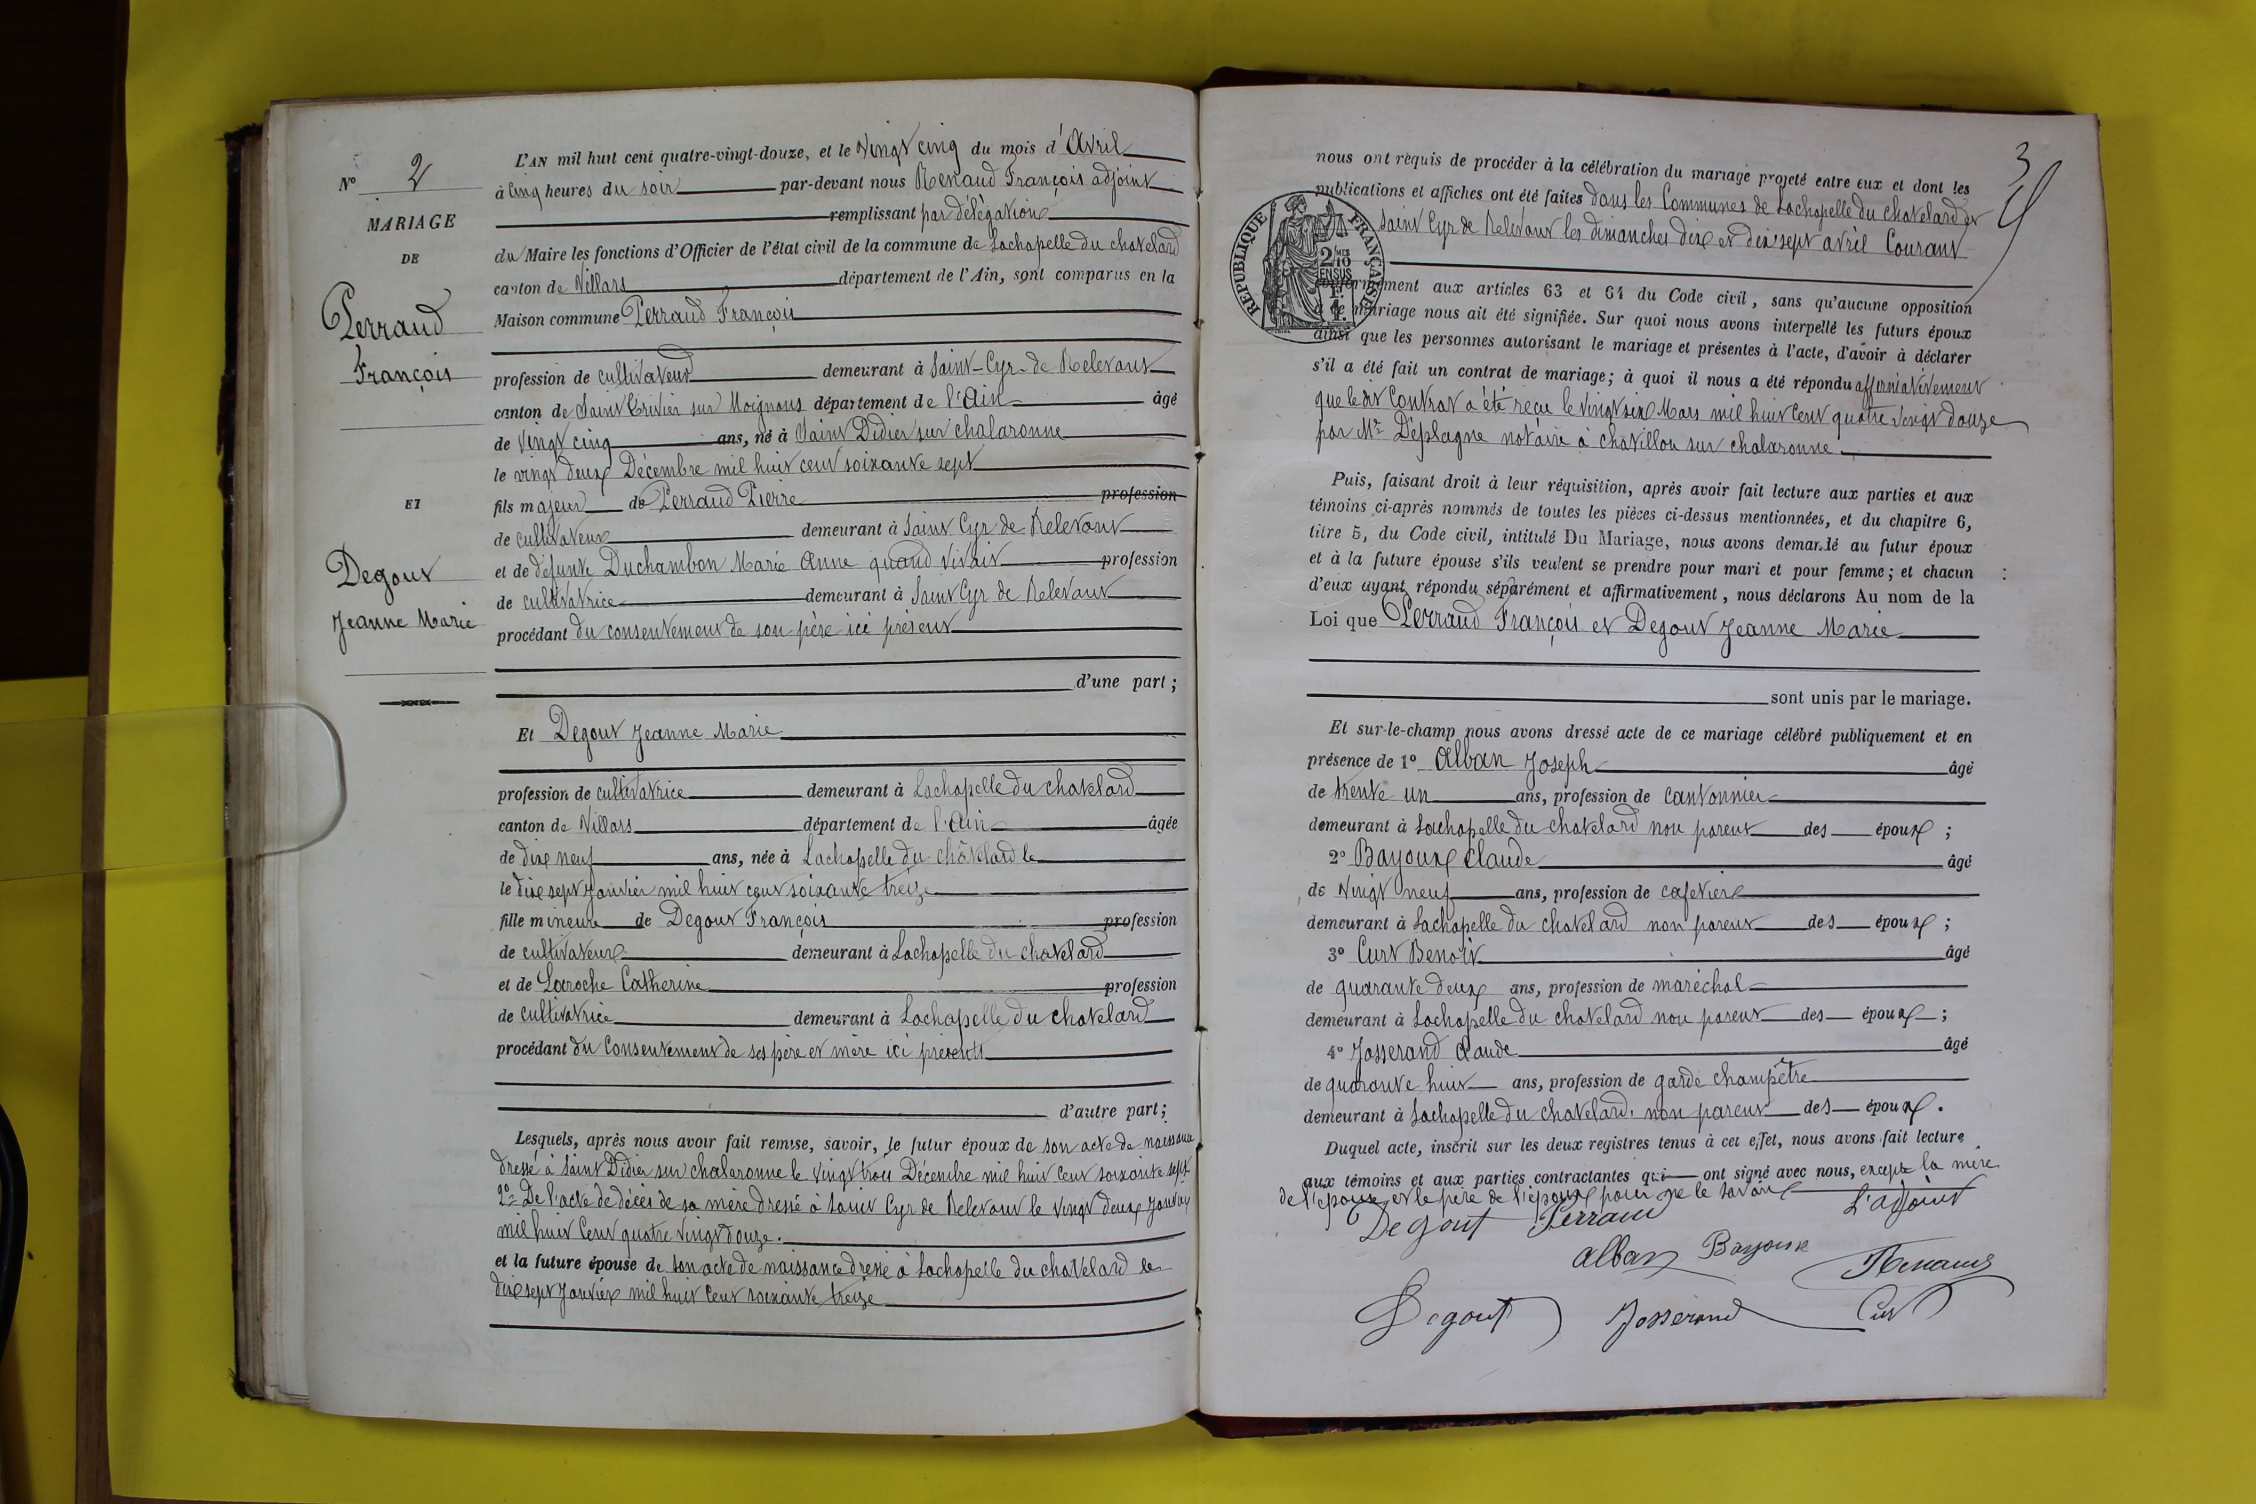 N° 2
MARIAGE
DE
Perraud
François
ET
Degout
Jeanne Marie
L'AN mil huit cent quatre-vingt-douze, et le Vingt cinq du mois d'Avril
à Cinq heures du soir par-devant nous Renaud François adjoint
remplissant par délégation
du Maire les fonctions d'Officier de l'état civil de la commune de Lachapelle du chatelard
canton de Villars département de l'Ain, sont comparus en la
Maison commune Perraud François
profession de cultivateur demeurant à Saint-Cyr-de Relevant
canton de Saint Trivier sur Moignans département de l'Ain âgé
de Vingt cinq ans, né à Saint Didier sur chalaronne
le vingt deux Décembre mil huit cent soixante sept
fils majeur de Perraud Pierre profession
de cultivateur demeurant à Saint Cyr de Relevant
et de défunte Duchambon Marie Anne quand vivait profession
de cultivatrice demeurant à Saint Cyr de Relevant
procédant du consentement de son père ici présent
d'une part;
Et Degout Jeanne Marie
profession de cultivatrice demeurant à Lachapelle du chatelard
canton de Villars département de l'Ain âgée
de dix neuf ans, née à Lachapelle du châtelard le
le dix sept Janvier mil huit cent soixante treize
fille mineure de Degout François profession
de cultivateur demeurant à Lachapelle du chatelard
et de Laroche Catherine profession
de cultivatrice demeurant à Lachapelle du chatelard
procédant du Consentement de ses père et mère ici présents
d'autre part;
Lesquels, après nous avoir fait remise, savoir, le futur époux de son acte de naissance
dressé à Saint Didier sur chalaronne le vingt trois Décembre mil huit cent soixante sept
2° De l'acte de décès de sa mère dressé à Saint Cyr de Relevant le vingt deux Janvier
mil huit Cent quatre vingt douze.
et la future épouse de son acte de naissance dressé à Lachapelle du chatelard le
dix sept Janvier mil huit Cent soixante treize
3
nous ont requis de procéder à la célébration du mariage projeté entre eux et dont les
publications et affiches ont été faites dans les Communes de Lachapelle du chatelard et
Saint Cyr de Relevant les dimanches dix et dix sept avril Courant
RÉPUBLIQUE FRANÇAISE
2/10 MES
EN SUS
1 F.
conformément aux articles 63 et 64 du Code civil, sans qu'aucune opposition
à ce mariage nous ait été signifiée. Sur quoi nous avons interpellé les futurs époux
ainsi que les personnes autorisant le mariage et présentes à l'acte, d'avoir à déclarer
s'il a été fait un contrat de mariage; à quoi il nous a été répondu affirmativement
que le dit Contrat a été reçu le vingt six Mars mil huit Cent quatre Vingt douze
par Me Déplagne notaire à chatillon sur chalaronne
Puis, faisant droit à leur réquisition, après avoir fait lecture aux parties et aux
témoins ci-après nommés de toutes les pièces ci-dessus mentionnées, et du chapitre 6,
titre 5, du Code civil, intitulé Du Mariage, nous avons demandé au futur époux
et à la future épouse s'ils veulent se prendre pour mari et pour femme; et chacun
d'eux ayant répondu séparément et affirmativement, nous déclarons Au nom de la
Loi que Perraud François et Degout Jeanne Marie
sont unis par le mariage.
Et sur-le-champ nous avons dressé acte de ce mariage célébré publiquement et en
présence de 1° Alban Joseph âgé
de trente un ans, profession de cantonnier
demeurant à Lachapelle du chatelard non parent des époux;
2° Bayoux Claude âgé
de Vingt neuf ans, profession de cafetier
demeurant à Lachapelle du chatelard non parent des époux;
3° Curt Benoît âgé
de quarante deux ans, profession de maréchal
demeurant à Lachapelle du chatelard non parent des époux;
4° Josserand Claude âgé
de quarante huit ans, profession de garde champêtre
demeurant à Lachapelle du chatelard. non parent des époux.
Duquel acte, inscrit sur les deux registres tenus à cet effet, nous avons fait lecture
aux témoins et aux parties contractantes qui ont signé avec nous, excepté la mère
de l'épouse et le père de l'époux pour ne le savoir
Degout Perraud L'adjoint
Alban Bayoux Renaud
Degout Josserand Curt